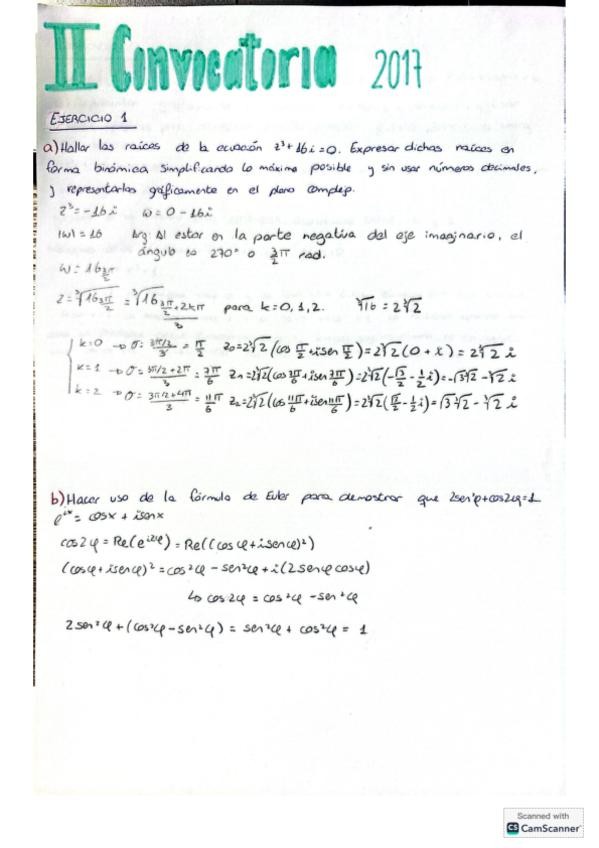 II Convocatoria 2017
EJERCICIO 1
a) Hallar las raíces de la ecuación z³+16i=0. Expresar dichas raíces en
forma binómica simplificando lo máximo posible y sin usar números decimales,
y representarlas gráficamente en el plano complejo.
z³=-16i w=0-16i
|w|=16 Arg: Al estar en la parte negativa del eje imaginario, el
ángulo es 270° o 3/2 π rad.
w=16_(3π/2)
z=∛16_(3π/2) = ∛16_((3π/2+2kπ)/3) para k=0,1,2. ∛16=2∛2
k=0 → σ=(3π/2)/3=π/2 z₀=2∛2(cos π/2+isen π/2)=2∛2(0+i)=2∛2 i
k=1 → σ=(3π/2+2π)/3=7π/6 z₁=2∛2(cos 7π/6+isen 7π/6)=2∛2(-√3/2-1/2i)=-√3∛2-∛2 i
k=2 → σ=(3π/2+4π)/3=11π/6 z₂=2∛2(cos 11π/6+isen 11π/6)=2∛2(√3/2-1/2i)=√3∛2-∛2 i
b) Hacer uso de la fórmula de Euler para demostrar que 2sen²φ+cos2φ=1
e^(ix)=cosx+isenx
cos2φ=Re(e^(i2φ))=Re((cosφ+isenφ)²)
(cosφ+isenφ)²=cos²φ-sen²φ+i(2senφcosφ)
↳ cos2φ=cos²φ-sen²φ
2sen²φ+(cos²φ-sen²φ)=sen²φ+cos²φ=1
Scanned with
CS CamScanner